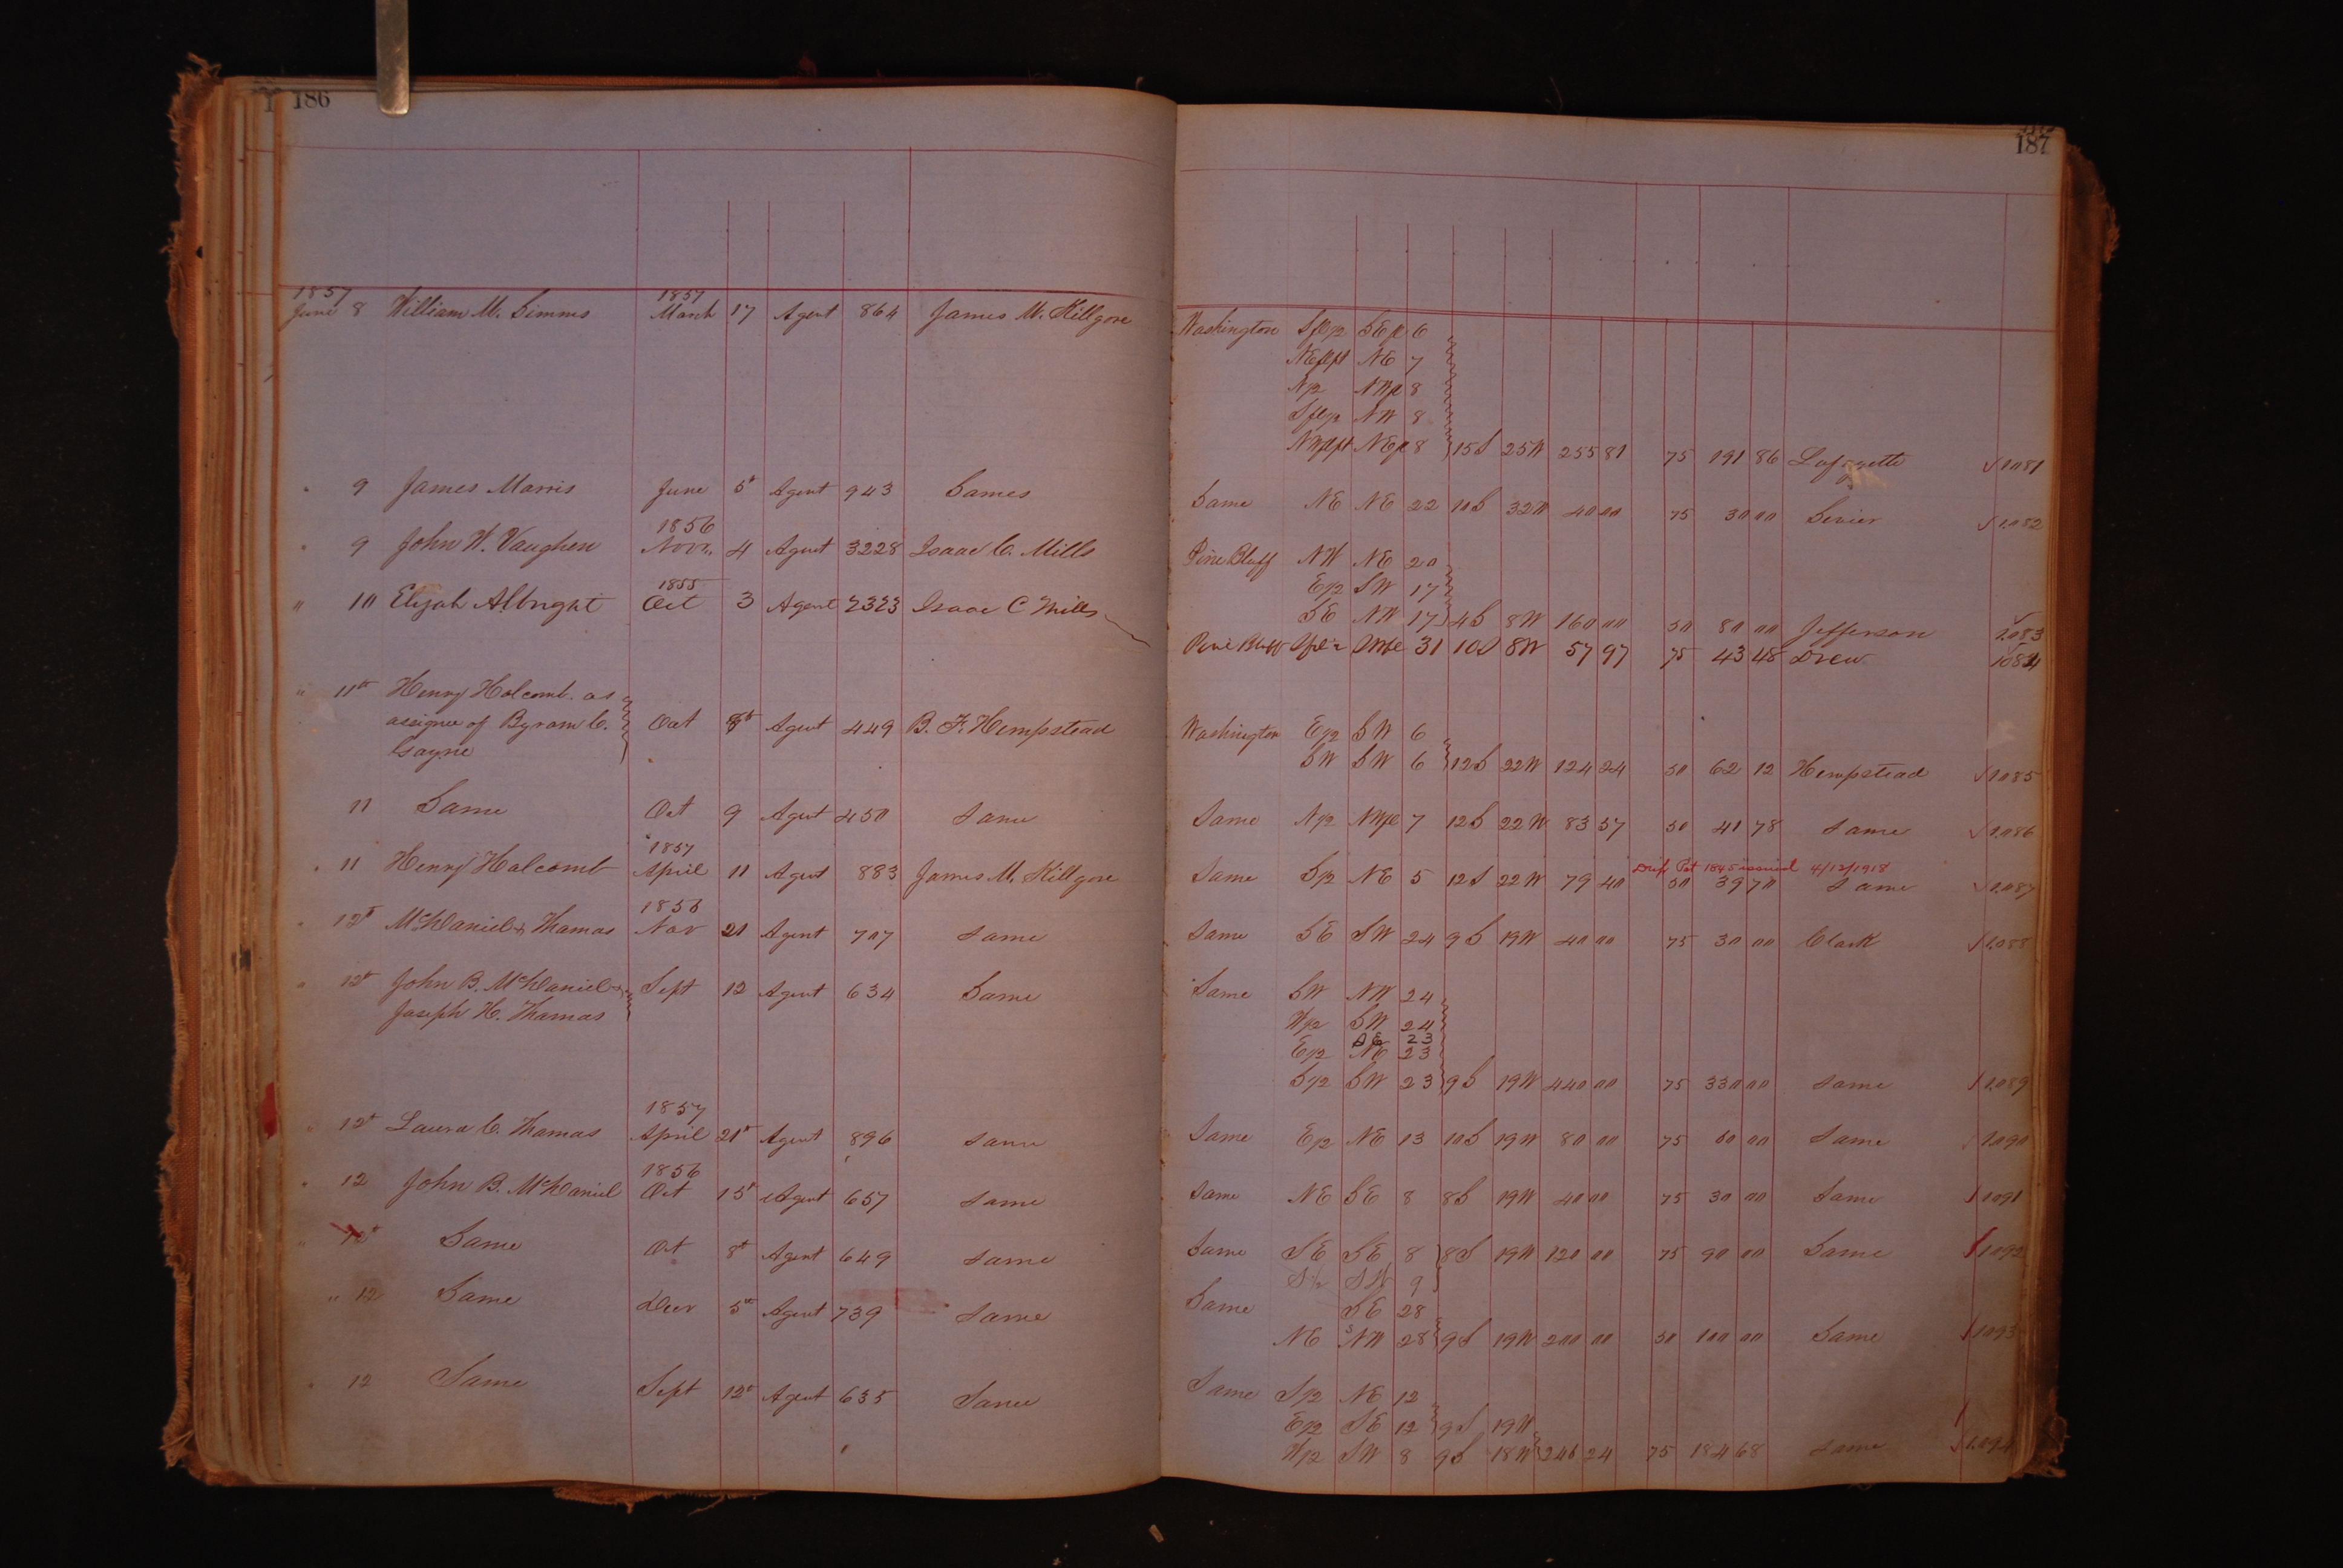 186
1857 1857
June 8 William M. Simms March 17 Agent 864 James M. Killgore
" 9 James Morris June 5th Agent 943 Sames
1856
" 9 John W. Vaughen Novr. 4 Agent 3228 Isaac C. Mills
1855
" 10 Elijah Albright Oct 3 Agent 2323 Isaac C Mills
" 11th Henry Holcomb. as
assignee of Byram C. Oat Agent 449 B. F. Hempstead
Gayne
11 Same Oct 9 Agent 450 Same
1857
" 11 Henry Holcomb April 11 Agent 883 James M. Killgore
1856
" 12th McDaniel & Thomas Nov 21 Agent 707 Same
" 12th John B. McDaniel & Sept 12 Agent 634 Same
Joseph H. Thomas
1857
12th Laura C. Thomas April 21st Agent 896 Same
1856
" 12 John B. McDaniel Oct 15th Agent 657 Same
" 12th Same Oct 8th Agent 649 Same
" 12 Same Decr 5th Agent 739 Same
" 12 Same Sept 12th Agent 635 Same
187
Washington Sfl½ SEfl 6
NEflpt NE 7
N½ NWfl 8
Sfl½ NW 8
NWflpt NEfl 8 15S 25W 255 81 75 191 86 Lafayette √ 1081
Same NE NE 22 10S 32W 40 00 75 30 00 Sevier √ 1082
Pine Bluff NW NE 20
E½ SW 17
SE NW 17 4S 8W 160 00 50 80 00 Jefferson √ 1083
Pine Bluff 31 10S 8W 57 97 75 43 48 Drew 1084
Washington E½ SW 6
SW SW 6 12S 22W 124 24 50 62 12 Hempstead √ 1085
Same N½ NWfl 7 12S 22W 83 57 50 41 78 Same √ 1086
Dup Pat 1845 issued 4/12/1918
Same S½ NE 5 12S 22W 79 40 50 39 70 Same √ 1087
Same SE SW 24 9S 19W 40 00 75 30 00 Clark √ 1088
Same SW NW 24
W½ SW 24
SE 23
E½ NE 23
S½ SW 23 9S 19W 440 00 75 330 00 Same √ 1089
Same E½ NE 13 10S 19W 80 00 75 60 00 Same √ 1090
Same NE SE 8 8S 19W 40 00 75 30 00 Same √ 1091
Same SE SE 8 8S 19W 120 00 75 90 00 Same √ 1092
S½ SW 9
Same SE 28
NE NW 28 9S 19W 200 00 50 100 00 Same √ 1093
Same S½ NE 12
E½ SE 12 9S 19W
W½ SW 8 9S 18W 246 24 75 184 68 Same √ 1094